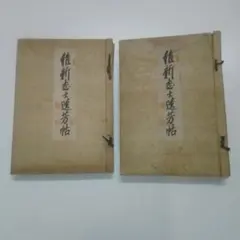 維新志士遺芳帖
維新志士遺芳帖